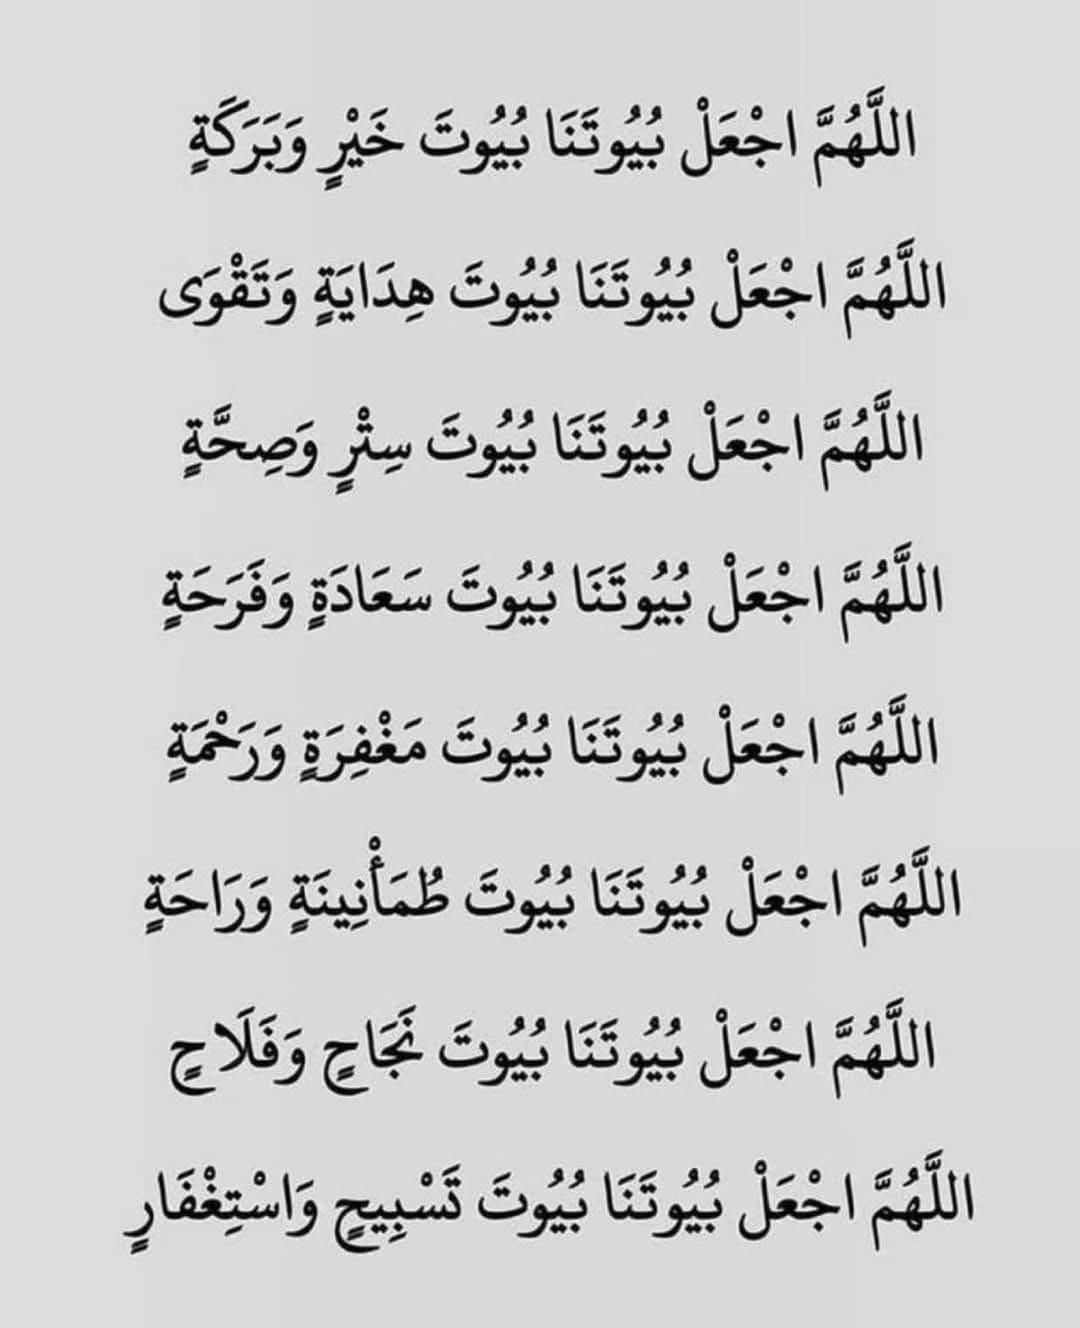 اللَّهُمَّ اجْعَلْ بُيُوتَنَا بُيُوتَ خَيْرٍ وَبَرَكَةٍ
اللَّهُمَّ اجْعَلْ بُيُوتَنَا بُيُوتَ هِدَايَةٍ وَتَقْوَى
اللَّهُمَّ اجْعَلْ بُيُوتَنَا بُيُوتَ سِتْرٍ وَصِحَّةٍ
اللَّهُمَّ اجْعَلْ بُيُوتَنَا بُيُوتَ سَعَادَةٍ وَفَرَحَةٍ
اللَّهُمَّ اجْعَلْ بُيُوتَنَا بُيُوتَ مَغْفِرَةٍ وَرَحْمَةٍ
اللَّهُمَّ اجْعَلْ بُيُوتَنَا بُيُوتَ طُمَأْنِينَةٍ وَرَاحَةٍ
اللَّهُمَّ اجْعَلْ بُيُوتَنَا بُيُوتَ نَجَاحٍ وَفَلَاحٍ
اللَّهُمَّ اجْعَلْ بُيُوتَنَا بُيُوتَ تَسْبِيحٍ وَاسْتِغْفَارٍ